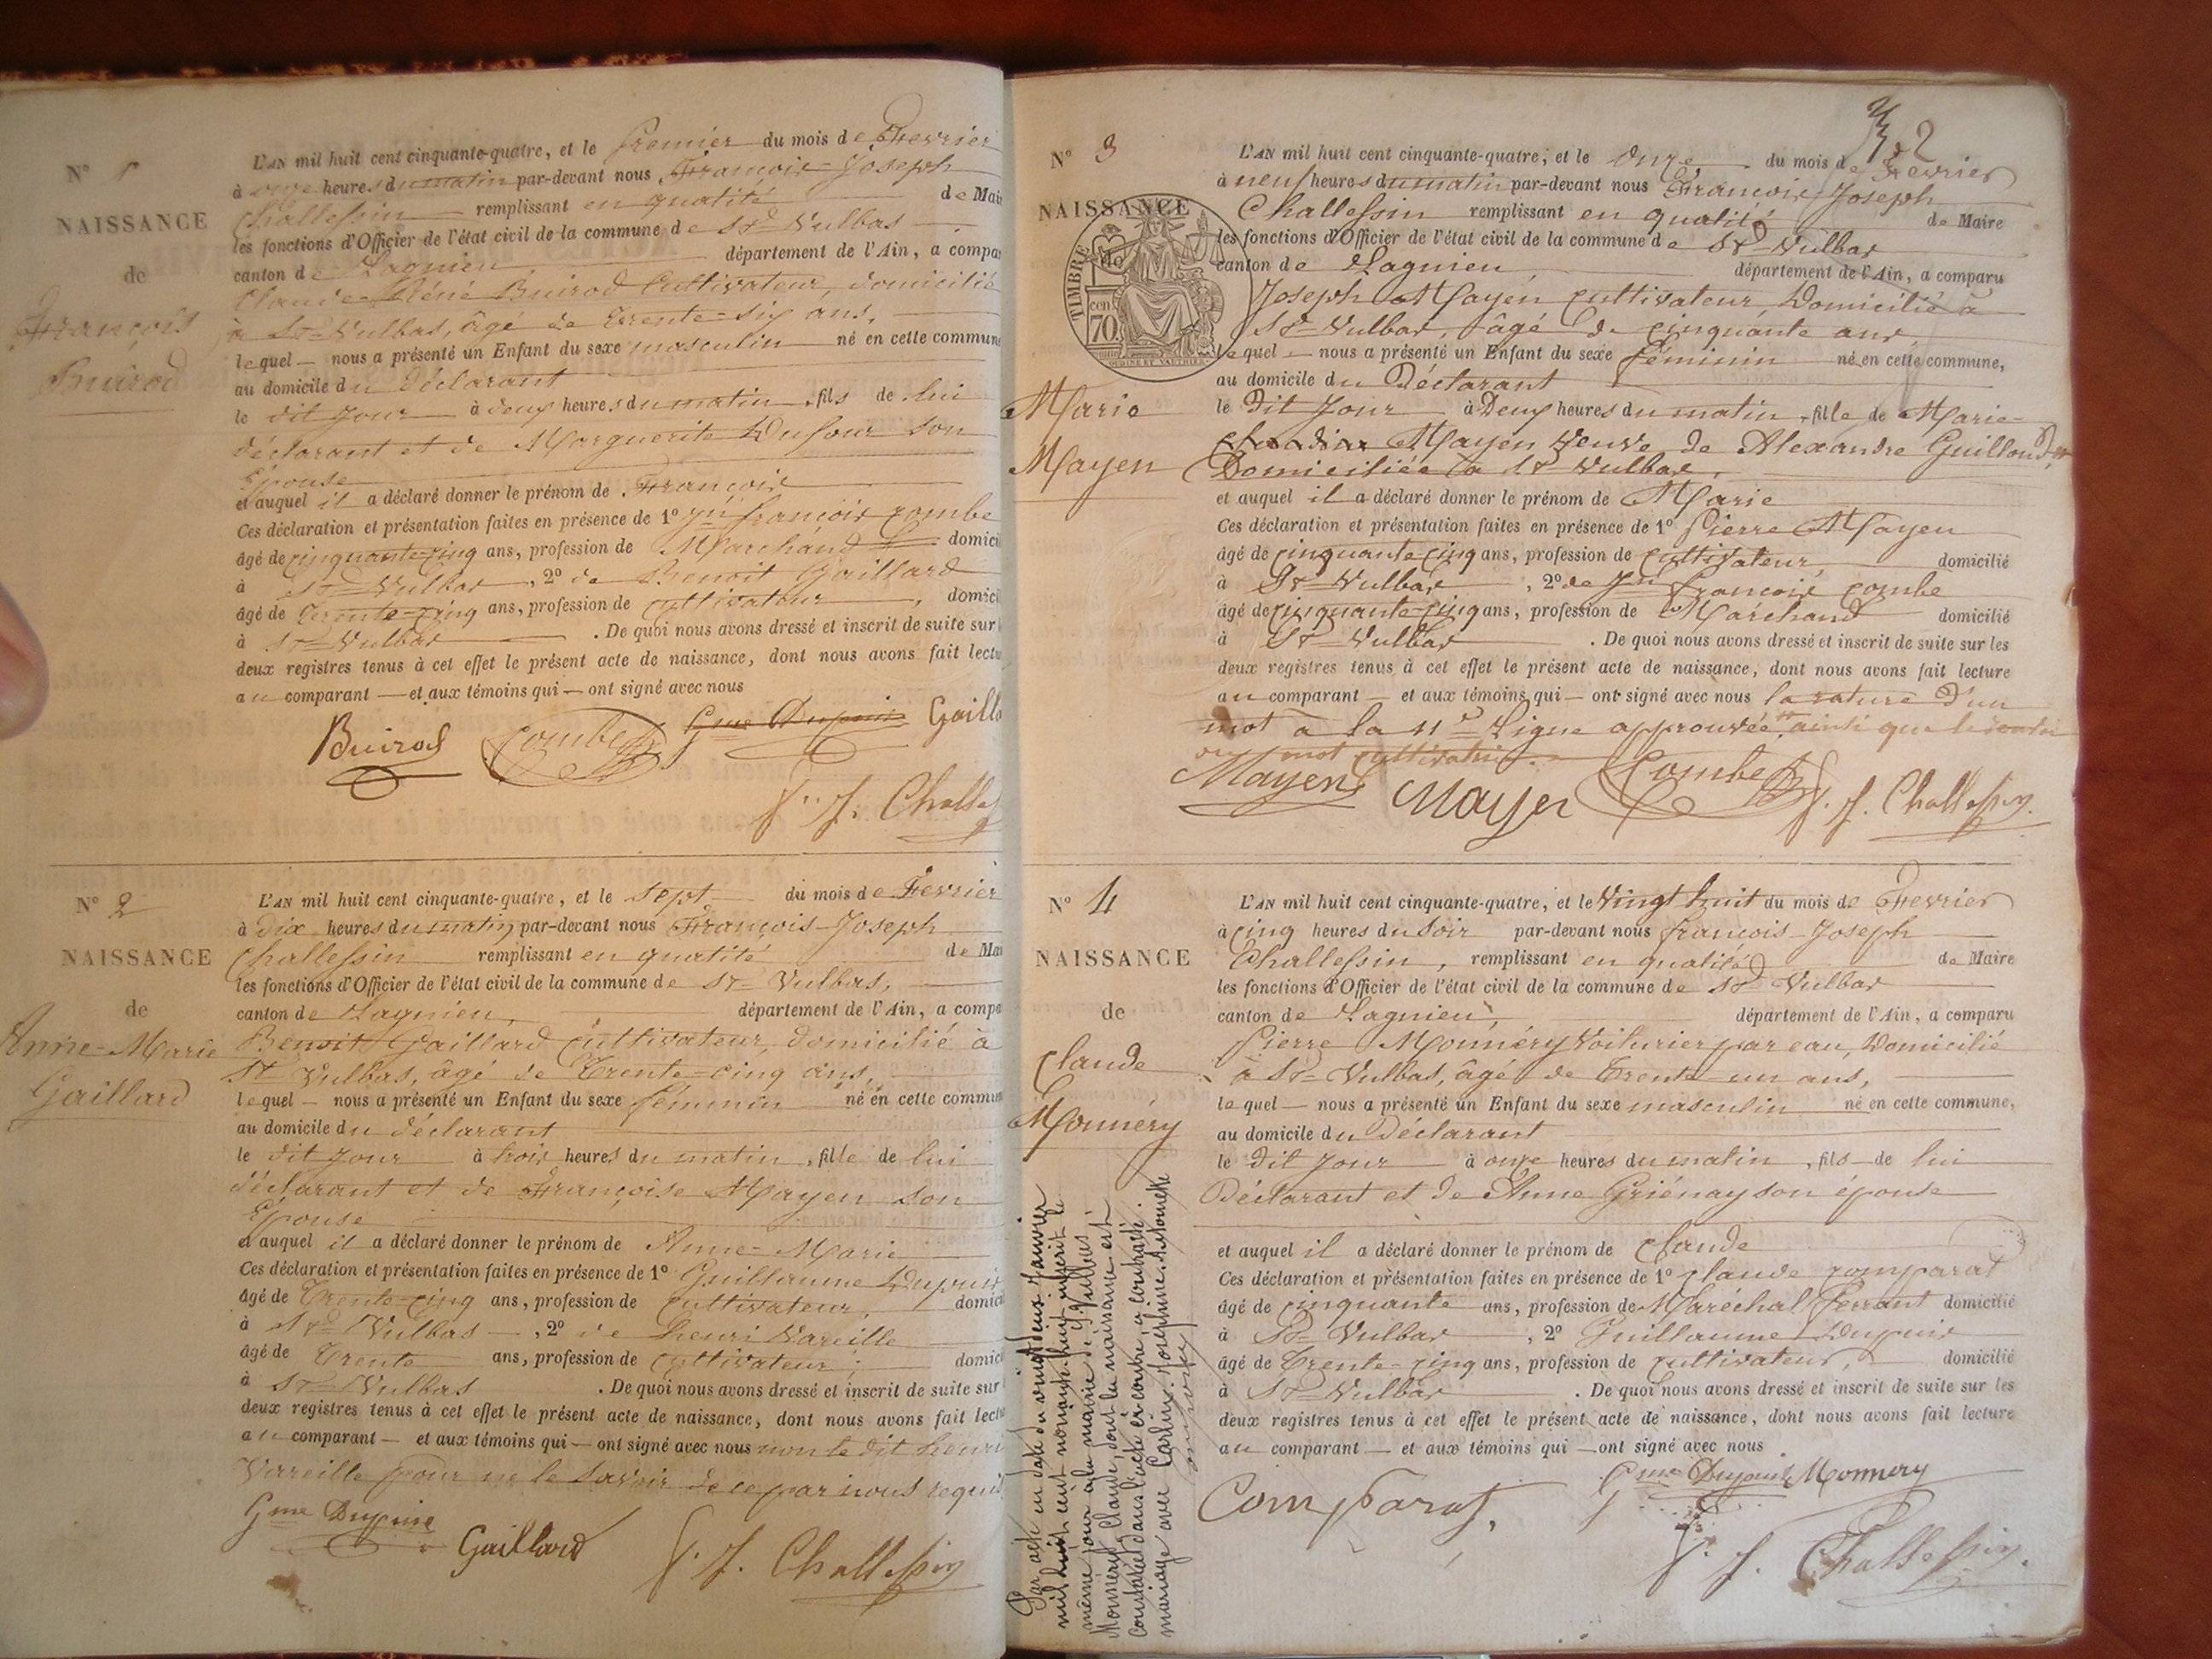 N° 1
NAISSANCE
de
François
Buirod
L'AN mil huit cent cinquante-quatre, et le premier du mois de Fevrier
à onze heures du matin par-devant nous François-Joseph
Challessin remplissant en qualité de Mai
les fonctions d'Officier de l'état civil de la commune de St Vulbas
canton de Lagnieu département de l'Ain, a compa
Claude-Réné Buirod Cultivateur, domicilié
à St Vulbas, âgé de Trente-six ans,
lequel nous a présenté un Enfant du sexe masculin né en cette commune
au domicile du déclarant
le dit jour à deux heures du matin, fils de lui
déclarant et de Marguerite Dufour son
Epouse
et auquel il a déclaré donner le prénom de François
Ces déclaration et présentation faites en présence de 1° Jn françois Combe
âgé de cinquante-cinq ans, profession de Marchand domici
à St Vulbas, 2° de Benoit Gaillard
âgé de Trente-cinq ans, profession de cultivateur, domici
à St Vulbas. De quoi nous avons dressé et inscrit de suite sur
deux registres tenus à cet effet le présent acte de naissance, dont nous avons fait lectu
au comparant et aux témoins qui ont signé avec nous
Buirod Combe Gme Dupuis Gailla
f. J. Challes
N° 2
NAISSANCE
de
Anne-Marie
Gaillard
L'AN mil huit cent cinquante-quatre, et le sept du mois de Fevrier
à dix heures du matin par-devant nous François-Joseph
Challessin remplissant en qualité de Mai
les fonctions d'Officier de l'état civil de la commune de St Vulbas,
canton de Lagnieu, département de l'Ain, a compa
Benoit Gaillard cultivateur, domicilié à
St Vulbas, âgé de Trente-cinq ans,
lequel nous a présenté un Enfant du sexe féminin né en cette commun
au domicile du déclarant
le dit jour à trois heures du matin, fille de lui
déclarant et de Françoise Mayen son
Epouse
et auquel il a déclaré donner le prénom de Anne-Marie
Ces déclaration et présentation faites en présence de 1° Guillaume Dupuis
âgé de Trente-cinq ans, profession de cultivateur, domici
à St Vulbas, 2° de henri Vareille
âgé de Trente ans, profession de cultivateur, domici
à St Vulbas. De quoi nous avons dressé et inscrit de suite sur
deux registres tenus à cet effet le présent acte de naissance, dont nous avons fait lectu
au comparant et aux témoins qui ont signé avec nous non le dit henri
Vareille pour ne le savoir de ce par nous requis
Gme Dupuis Gaillard f. J. Challessin
2
N° 3
NAISSANCE
TIMBRE
70
cen
Marie
Mayen
L'AN mil huit cent cinquante-quatre, et le onze du mois de Fevrier
à neuf heures du matin par-devant nous François Joseph
Challessin remplissant en qualité de Maire
les fonctions d'Officier de l'état civil de la commune de St Vulbas
canton de Lagnieu, département de l'Ain, a comparu
Joseph Mayen cultivateur, Domicilié à
St Vulbas, âgé de cinquante ans
lequel nous a présenté un Enfant du sexe féminin né en cette commune,
au domicile du Déclarant
le Dit Jour à Deux heures du matin, fille de Marie-
Claudine Mayen Veuve de Alexandre Guillond
Domiciliée à St Vulbas,
et auquel il a déclaré donner le prénom de Marie
Ces déclaration et présentation faites en présence de 1° Pierre Mayen
âgé de cinquante cinq ans, profession de cultivateur, domicilié
à St Vulbas, 2° de Jn françois combe
âgé de cinquante-cinq ans, profession de Marchand domicilié
à St Vulbas. De quoi nous avons dressé et inscrit de suite sur les
deux registres tenus à cet effet le présent acte de naissance, dont nous avons fait lecture
au comparant et aux témoins qui ont signé avec nous la rature d'un
mot à la 11e Ligne approuvée ainsi que le
mot
Mayen Mayer Combe f. J. Challessin
N° 4
NAISSANCE
de
Claude
Monnéry
L'AN mil huit cent cinquante-quatre, et le Vingt huit du mois de Fevrier
à cinq heures du Soir par-devant nous françois-Joseph
Challessin, remplissant en qualité de Maire
les fonctions d'Officier de l'état civil de la commune de St Vulbas
canton de Lagnieu, département de l'Ain, a comparu
Pierre Monnéry Voiturier par eau, Domicilié
à St Vulbas, âgé de Trente un ans,
lequel nous a présenté un Enfant du sexe masculin né en cette commune,
au domicile du Déclarant
le Dit Jour à onze heures du matin, fils de lui
Déclarant et de Anne Griénay son épouse
et auquel il a déclaré donner le prénom de Claude
Ces déclaration et présentation faites en présence de 1° Claude comparat
âgé de cinquante ans, profession de Maréchal ferrant domicilié
à St Vulbas, 2° Guillaume Dupuis
âgé de Trente-cinq ans, profession de cultivateur, domicilié
à St Vulbas. De quoi nous avons dressé et inscrit de suite sur les
deux registres tenus à cet effet le présent acte de naissance, dont nous avons fait lecture
au comparant et aux témoins qui ont signé avec nous
Comparat, Gme Dupuis Monnery
f. J. Challessin
Par acte en date du vingt deux Janvier
mil huit cent nonante huit inscrit le
même jour à la mairie de
Monnéry Claude, dont la naissance est
constatée dans l'acte ci-contre, a contracté
mariage avec Carlin, Joséphine